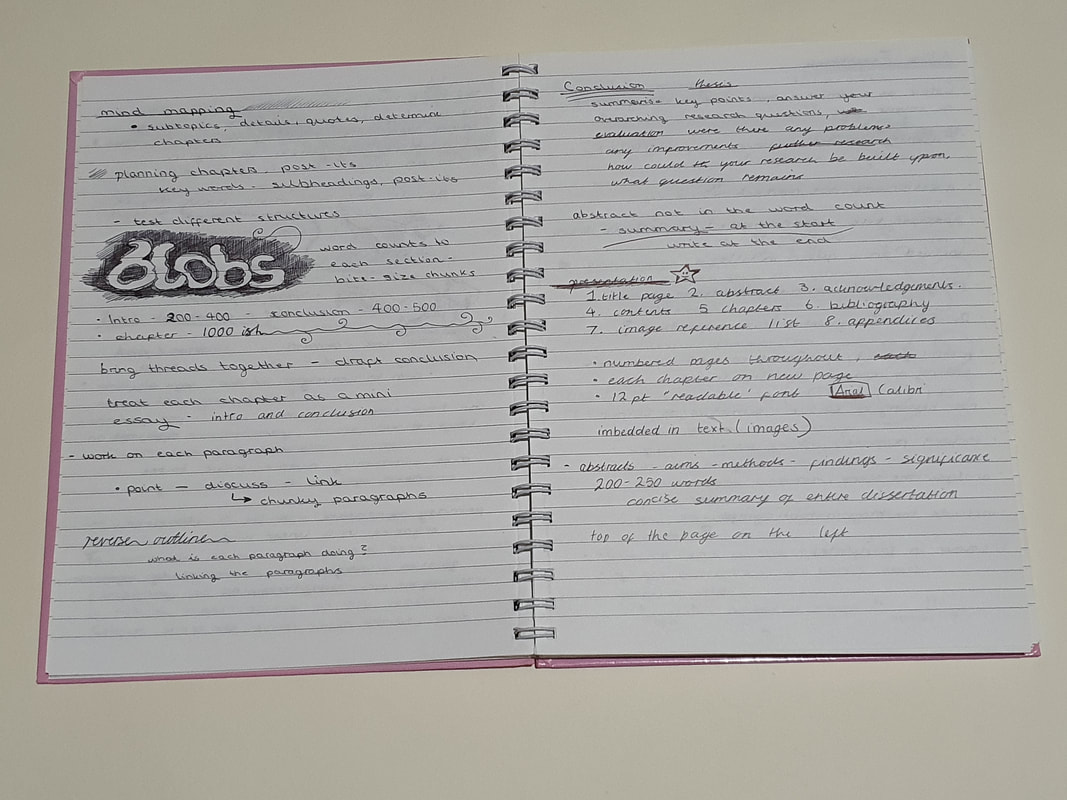 mind mapping
• subtopics, details, quotes, determine
chapters
planning chapters, post-its
key words - subheadings, post-its
- test different structures
Blobs
word counts to
each section -
bite-size chunks
• Intro - 200-400 - conclusion - 400-500
• chapter - 1000 ish
bring threads together - draft conclusion
treat each chapter as a mini
essay - intro and conclusion
- work on each paragraph
• point — discuss - link
↳ chunky paragraphs
reverse outline
what is each paragraph doing?
linking the paragraphs
Conclusion thesis
summarise key points, answer your
overarching research questions,
evaluation were there any problems
any improvements further research
how could your research be built upon,
what question remains
abstract not in the word count
- summary - at the start
write at the end
presentation
1. title page 2. abstract 3. acknowledgements.
4. contents 5 chapters 6. bibliography
7. image reference list 8. appendices
• numbered pages throughout, each
• each chapter on new page
• 12pt "readable" font Arial Calibri
imbedded in text (images)
- abstracts - aims - methods - findings - significance
200-250 words
concise summary of entire dissertation
top of the page on the left